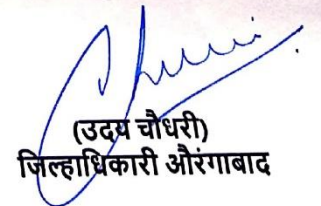 (उदय चौधरी)
जिल्हाधिकारी औरंगाबाद